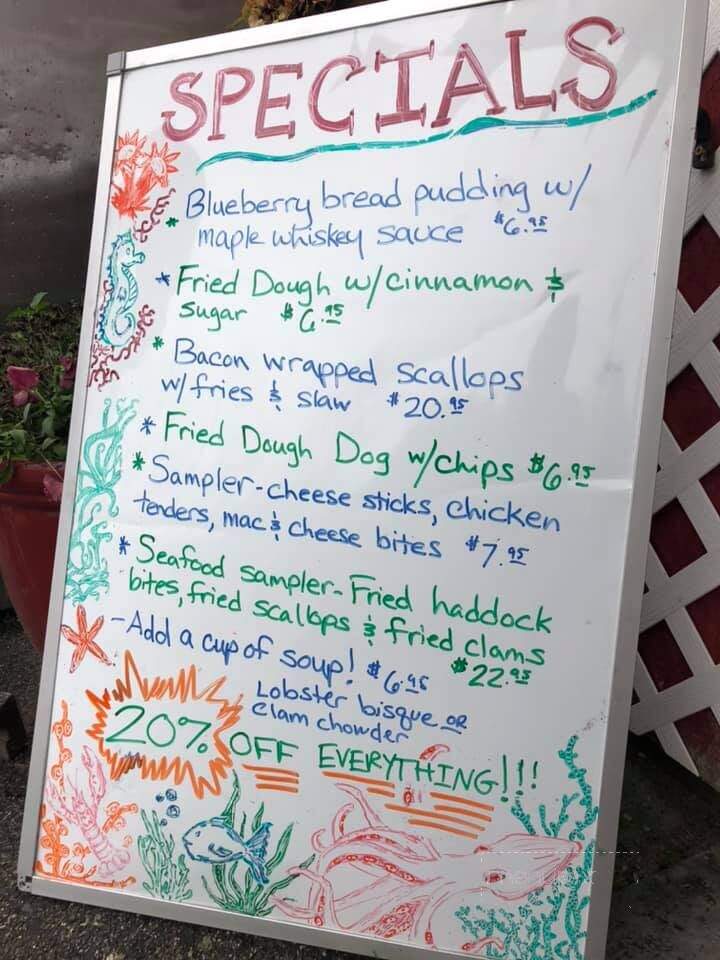 SPECIALS
* Blueberry bread pudding w/
maple whiskey sauce $6.95
* Fried Dough w/cinnamon &
sugar $6.95
* Bacon wrapped scallops
w/fries & slaw $20.95
* Fried Dough Dog w/chips $6.95
* Sampler-cheese sticks, chicken
tenders, mac & cheese bites $7.95
* Seafood sampler-Fried haddock
bites, fried scallops & fried clams
$22.95
-Add a cup of soup! $6.95
Lobster bisque OR
clam chowder
20% OFF EVERYTHING!!!